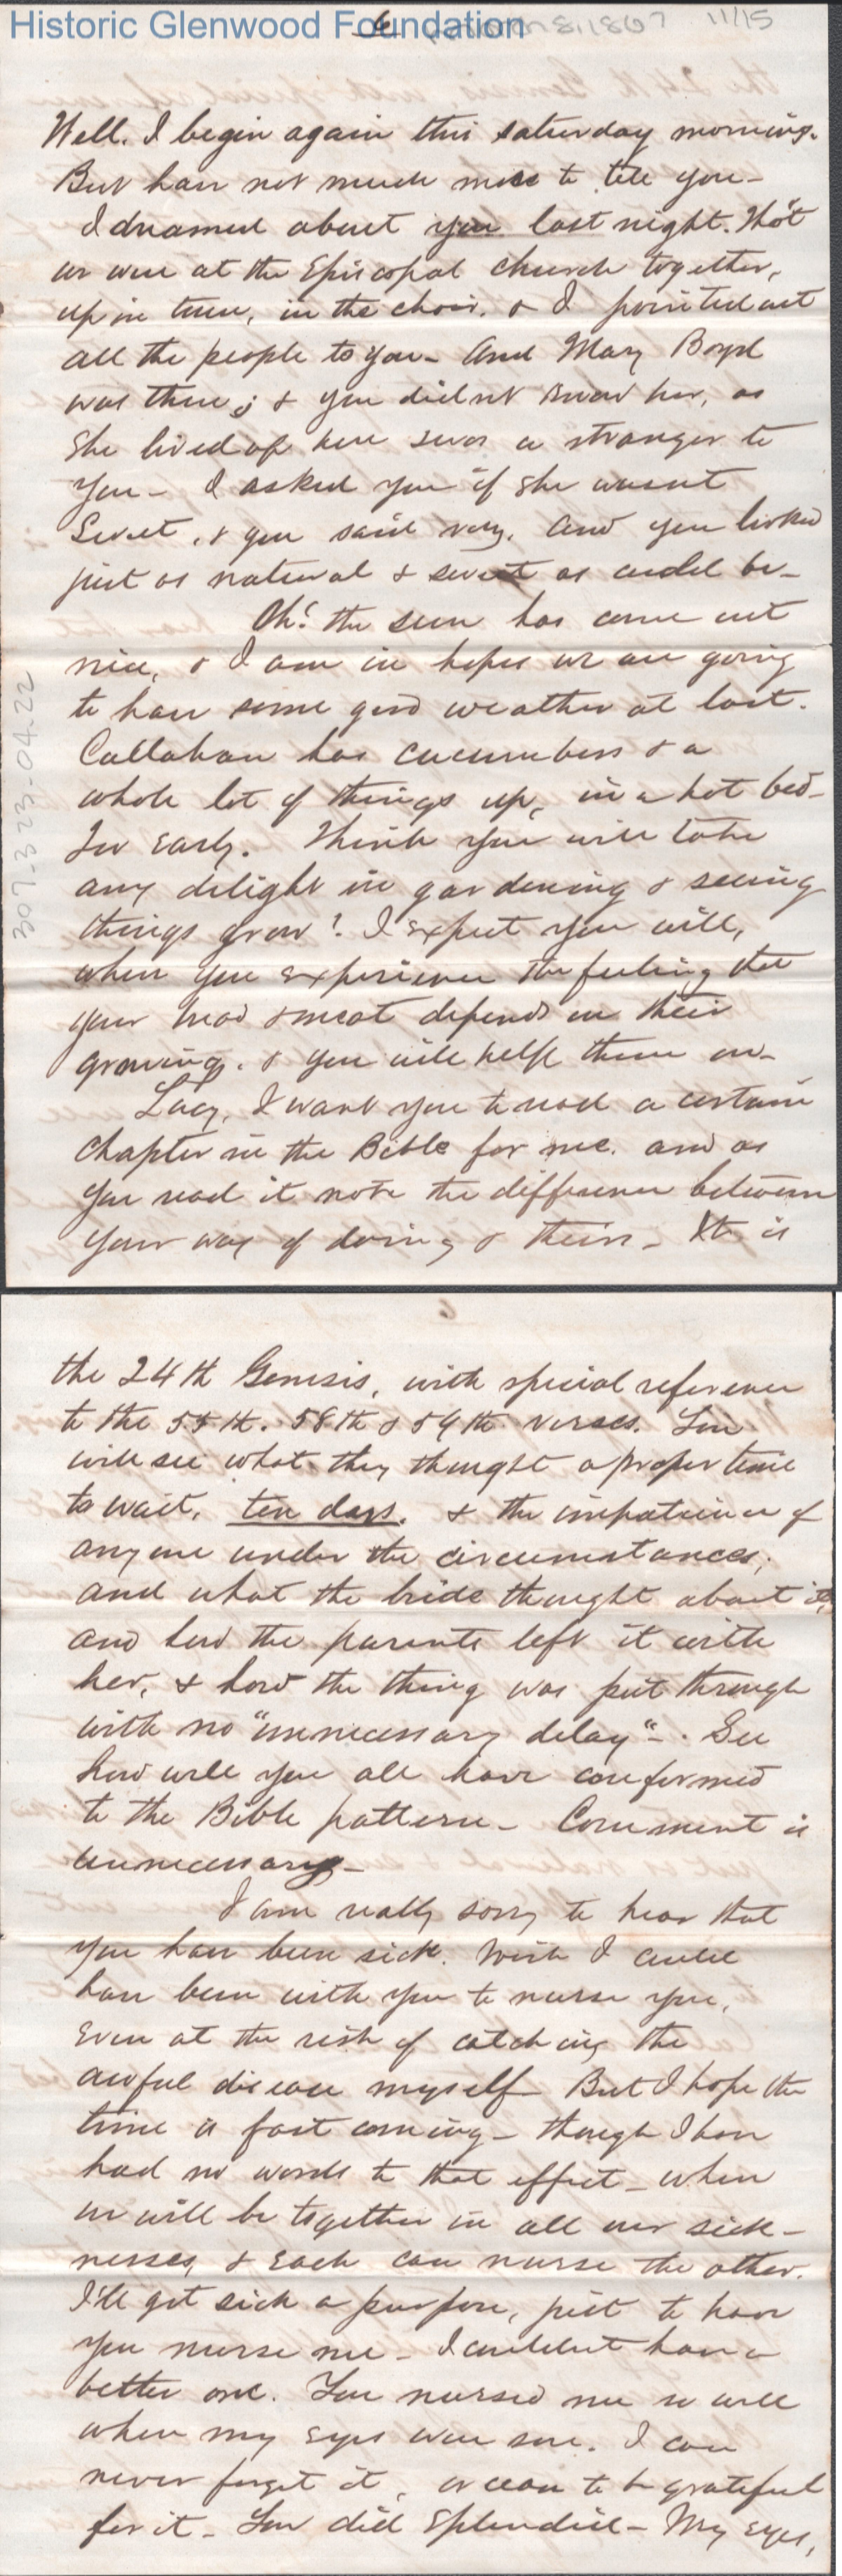 Historic Glenwood Foundation
6
March 8, 1867 11/15
Well. I begin again this saturday morning.
But have not much more to tell you-
I dreamed about you last night. Tho't
we were at the Episcopal church together,
up in town, in the choir. & I pointed out
all the people to you- And Mary Boyd
was there; & you didn't know her, as
she lived up here & was a stranger to
you- I asked you if she wasn't
sweet, & you said very. And you looked
just as natural & sweet as could be-
Oh! the sun has come out
nice, & I am in hopes we are going
to have some good weather at last.
Callahan has cucumbers & a
whole lot of things up, in a hot bed-
for early. Think you will take
any delight in gardening & seeing
things grow? I expect you will,
when you experience the feeling that
your bread & meat depends on their
growing. & you will help them on-
Lucy, I want you to read a certain
chapter in the Bible for me. and as
you read it note the difference between
your way of doing & theirs- It is
307-323-04.22
the 24th Genesis, with special reference
to the 55th. 58th & 59th verses. You
will see what they thought a proper time
to wait, ten days. & the impatience of
anyone under the circumstances;
and what the bride thought about it,
and how the parents left it with
her, & how the thing was put through
with no "unnecessary delay"-. See
how well you all have conformed
to the Bible pattern- Comment is
unnecessary-
I am really sorry to hear that
you have been sick. Wish I could
have been with you to nurse you,
even at the risk of catching the
awful disease myself- But I hope the
time is fast coming- though I have
had no words to that effect- when
we will be together in all our sick-
nesses, & each can nurse the other.
I'll get sick a purpose, just to have
you nurse me- I couldn't have a
better one. You nursed me so well
when my eyes were sore. I can
never forget it, or cease to be grateful
for it- You did splendid- My eyes,